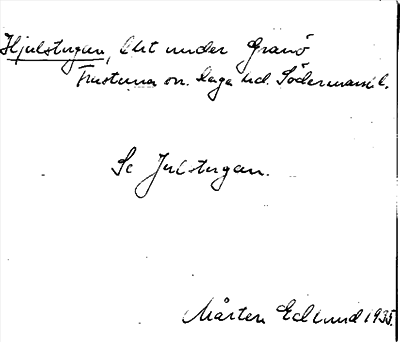 Hjulstugan, lht under Granö
Trosterna sn. Daga hd. Södermanl.
Se Julstugan.
Mårten Edlund 1935.